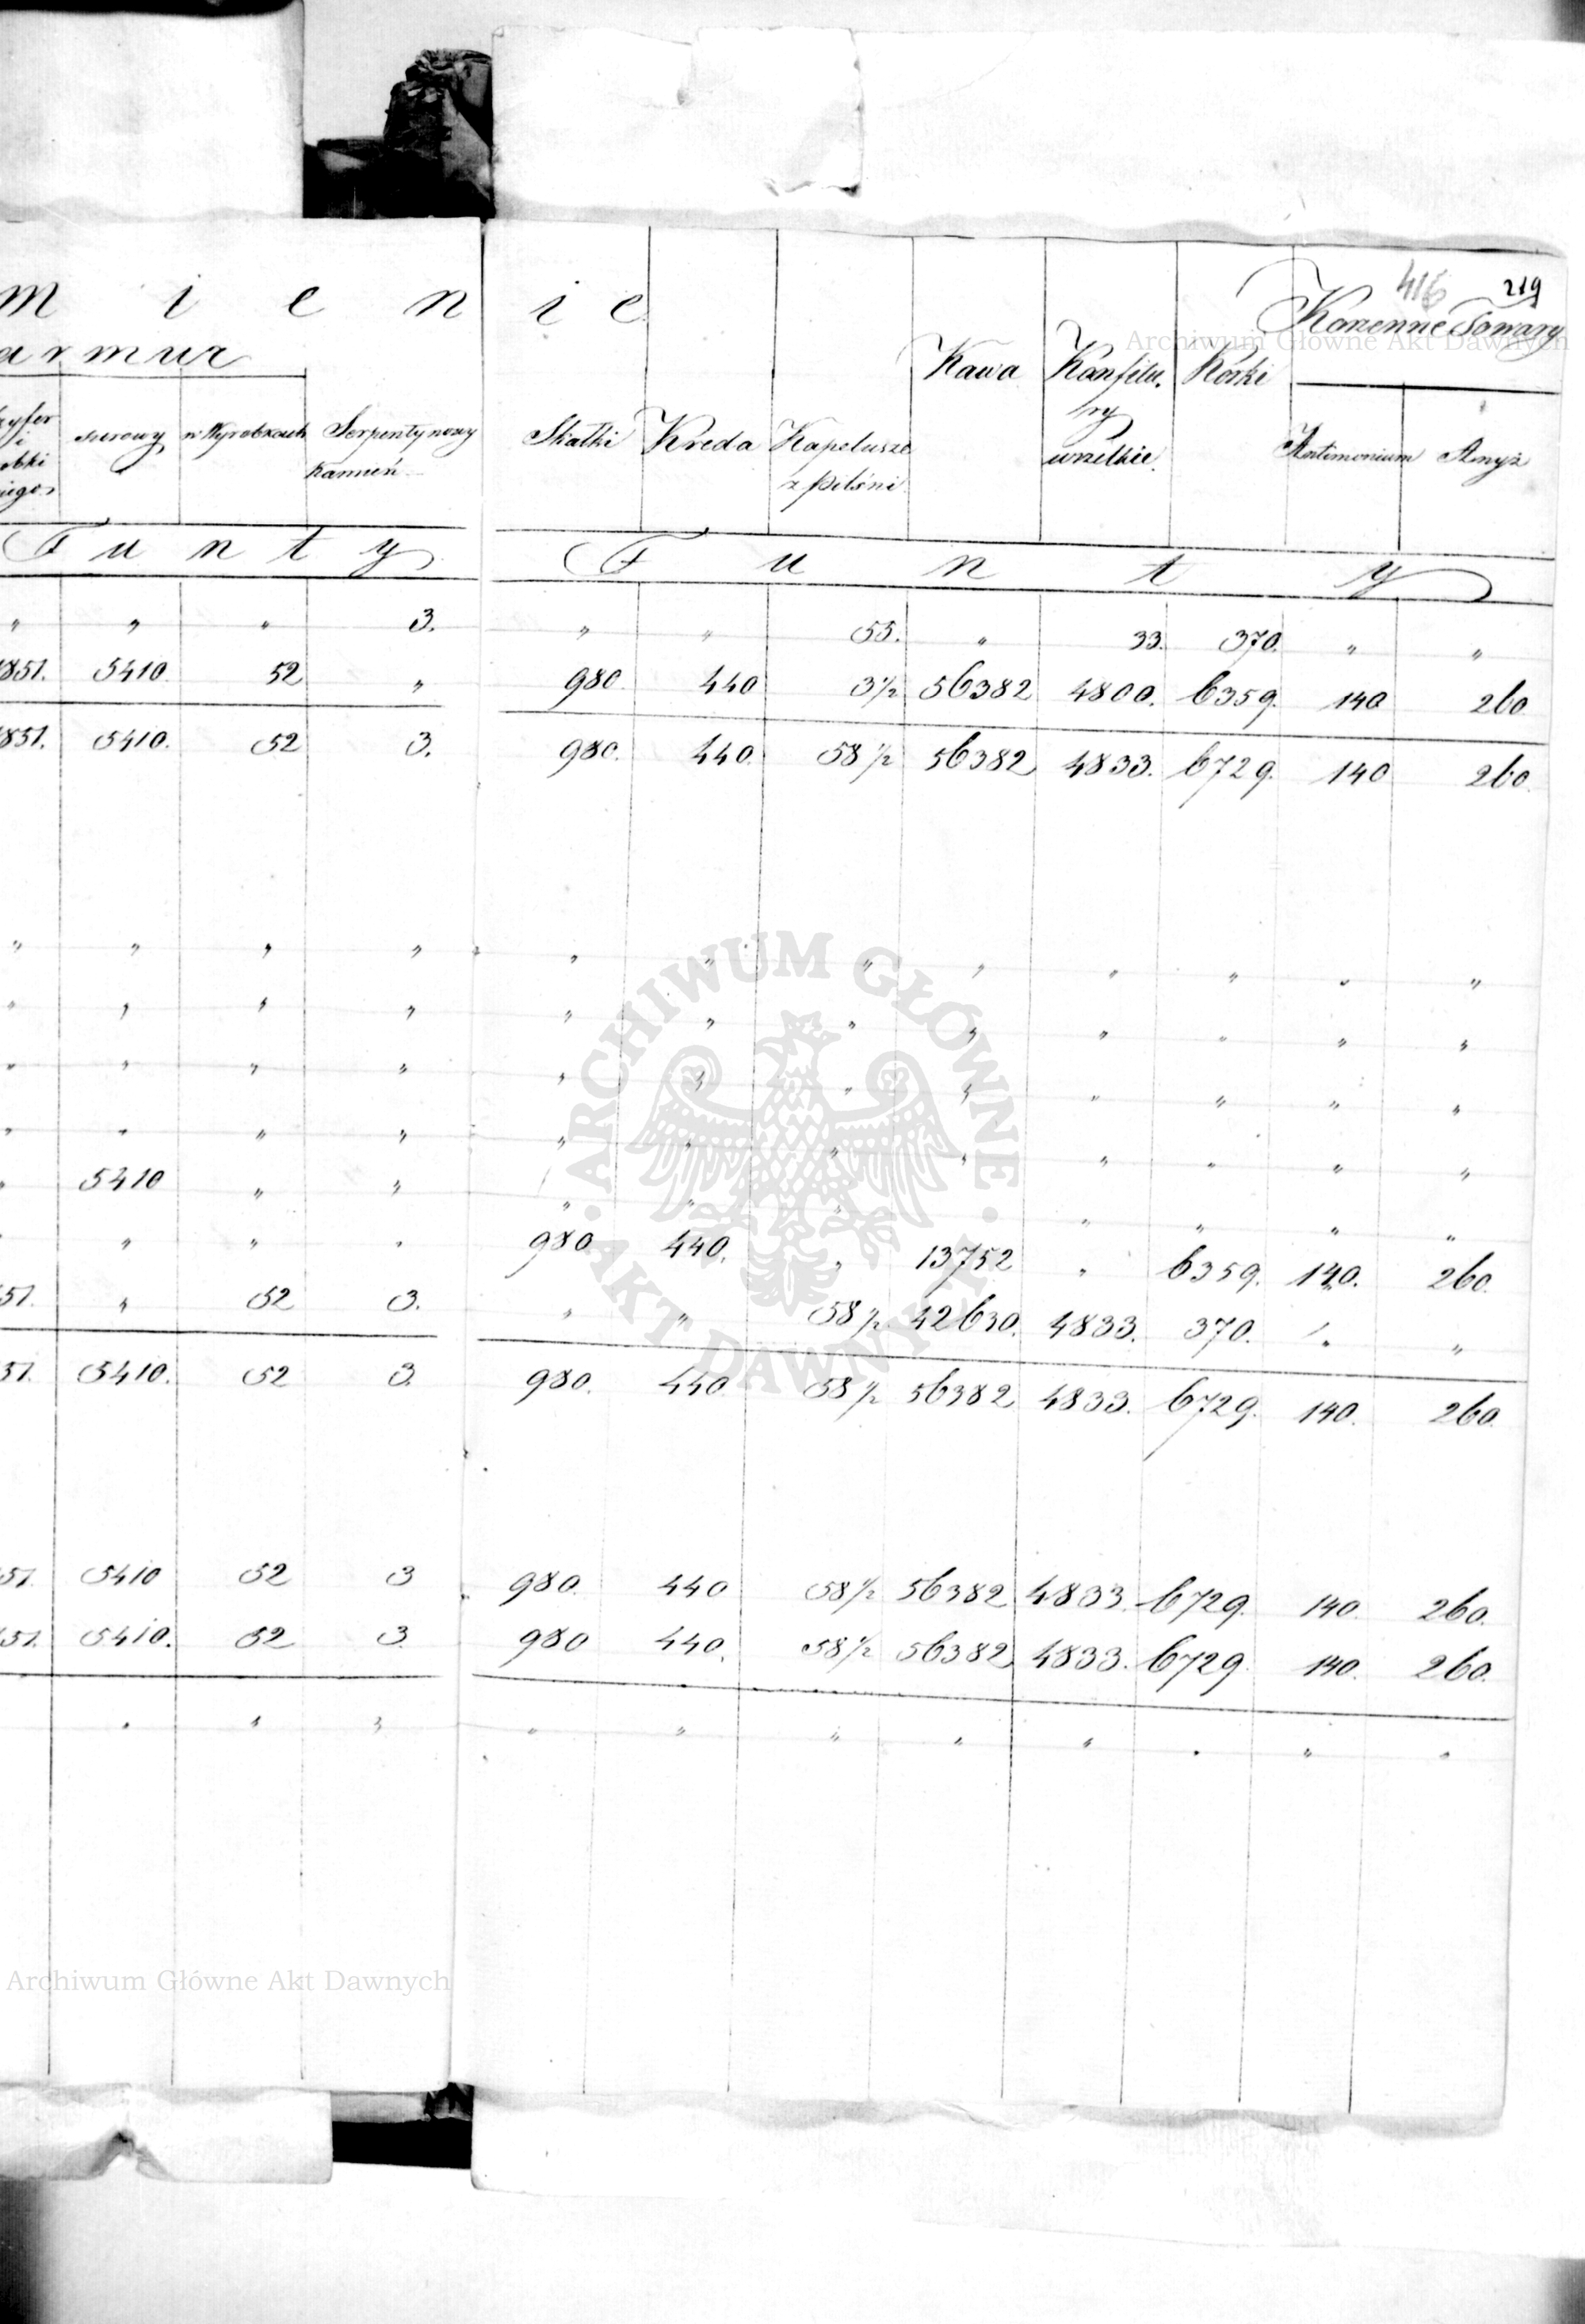 416 219
m i e n i e
armur
Korzenne Towary
Kawa Konfitu, Korki
ry
wszelkie.
surowy w Wyrobkach Serpentynowy
Kamień
Skałki Kreda Kapelusze
z pilśni
Antimonium Anyż
F u n t y F u n t y
" " " 3. " " 55. " 33. 370. " "
5410. 52 " 980. 440 3½ 56382 4800. 6359. 140 260
5410. 52 3. 980. 440. 58½ 56382 4833. 6729. 140 260.
" " " " " " " " " " " "
" " " " " " " " " " " "
" " " " " " " " " " " "
" " " " " " " " " " " "
" 5410 " " " " " " " " "
" " " 980 440. " 13752 " 6359. 140. 260.
" 52 3. " " 58½ 42630. 4833. 370. " "
5410. 52 3. 980. 440 58½ 56382 4833. 6729. 140. 260.
5410 52 3 980. 440 58½ 56382 4833. 6729. 140. 260.
5410. 52 3. 980 440. 58½ 56382 4833. 6729. 140. 260.
" " " " " " " " " " "
ARCHIWUM GŁÓWNE · AKT DAWNYCH ·
Archiwum Główne Akt Dawnych
Archiwum Główne Akt Dawnych